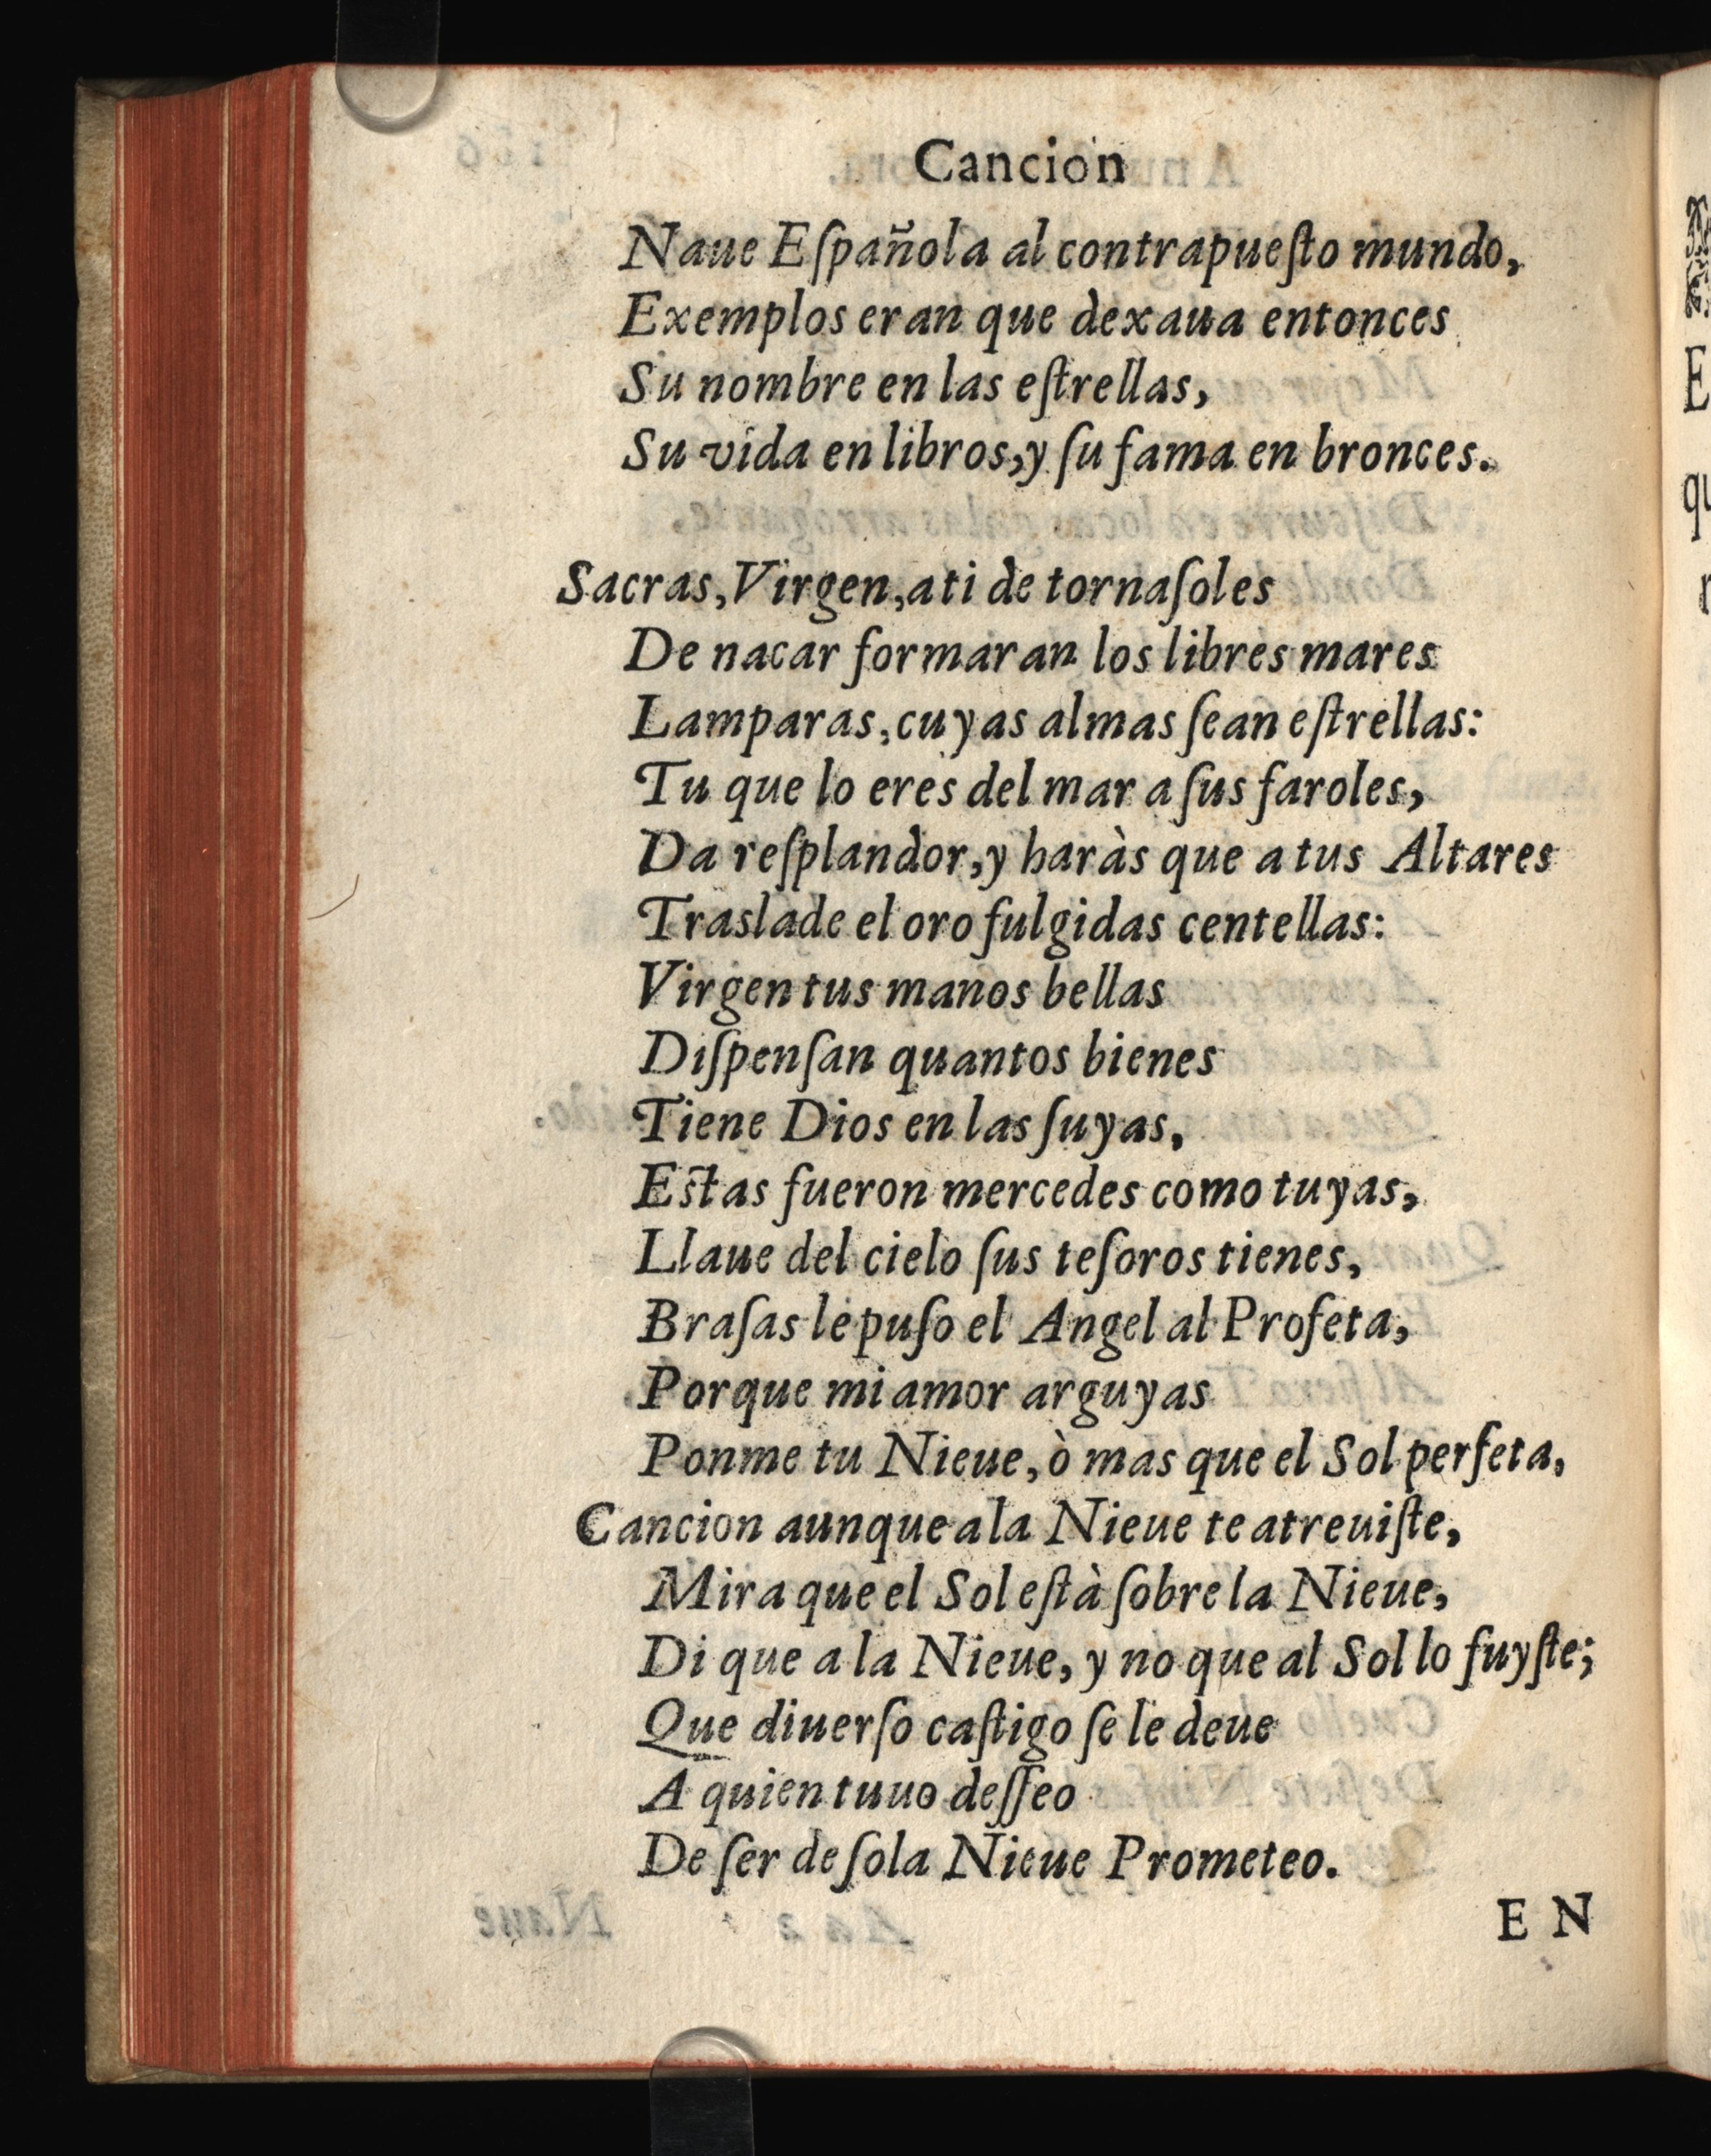 Cancion
Naue Eſpañola al contrapueſto mundo,
Exemplos eran que dexaua entonces
Su nombre en las eſtrellas,
Su vida en libros,y ſu fama en bronces.
Sacras,Virgen,a ti de tornaſoles
De nacar formaran los libres mares
Lamparas,cuyas almas ſean eſtrellas:
Tu que lo eres del mar a ſus faroles,
Da reſplandor,y haràs que a tus Altares
Traslade el oro fulgidas centellas:
Virgen tus manos bellas
Diſpenſan quantos bienes
Tiene Dios en las ſuyas,
Eſtas fueron mercedes como tuyas,
Llaue del cielo ſus teſoros tienes,
Braſas le puſo el Angel al Profeta,
Porque mi amor arguyas
Ponme tu Nieue,ò mas que el Sol perfeta,
Cancion aunque a la Nieue te atreuiſte,
Mira que el Sol eſtà ſobre la Nieue,
Di que a la Nieue, y no que al Sol lo fuyſte;
Que diuerſo caſtigo ſe le deue
A quien tuuo deſſeo
De ſer de ſola Nieue Prometeo.
EN